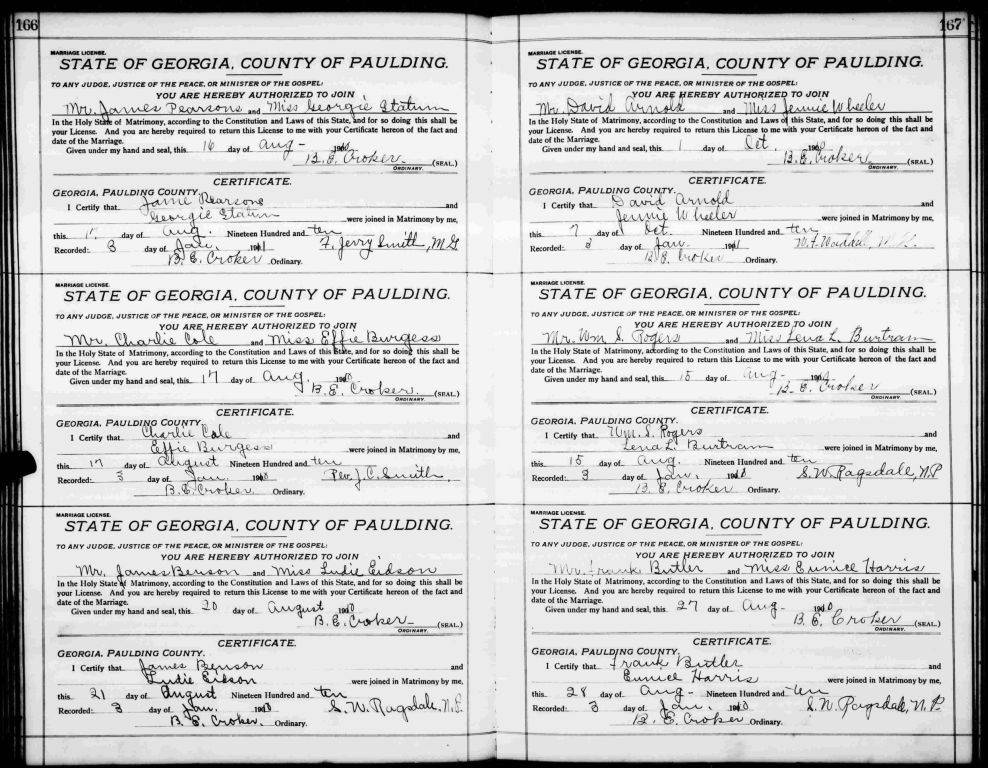 166
MARRIAGE LICENSE.
STATE OF GEORGIA, COUNTY OF PAULDING.
TO ANY JUDGE, JUSTICE OF THE PEACE, OR MINISTER OF THE GOSPEL:
YOU ARE HEREBY AUTHORIZED TO JOIN
Mr. James Pearsons and Miss Georgie Statum
In the Holy State of Matrimony, according to the Constitution and Laws of this State, and for so doing this shall be
your License. And you are hereby required to return this License to me with your Certificate hereon of the fact and
date of the Marriage.
Given under my hand and seal, this 16 day of Aug- 1910
B. E. Croker (SEAL.)
ORDINARY.
CERTIFICATE.
GEORGIA, PAULDING COUNTY.
I Certify that Jamie Pearsons and
Georgie Statum were joined in Matrimony by me,
this day of Aug. Nineteen Hundred and ten
Recorded: 3 day of Jan. 1911 F. Jerry Smith, M.G
B. E. Croker Ordinary.
MARRIAGE LICENSE.
STATE OF GEORGIA, COUNTY OF PAULDING.
TO ANY JUDGE, JUSTICE OF THE PEACE, OR MINISTER OF THE GOSPEL:
YOU ARE HEREBY AUTHORIZED TO JOIN
Mr. Charlie Cole and Miss Effie Burgess
In the Holy State of Matrimony, according to the Constitution and Laws of this State, and for so doing this shall be
your License. And you are hereby required to return this License to me with your Certificate hereon of the fact and
date of the Marriage.
Given under my hand and seal, this 17 day of Aug. 1910
B. E. Croker (SEAL.)
ORDINARY.
CERTIFICATE.
GEORGIA, PAULDING COUNTY.
I Certify that Charlie Cole and
Effie Burgess were joined in Matrimony by me,
this 17 day of August Nineteen Hundred and ten
Recorded: 3 day of Jan. Rev. J. C. Smith.
B. E. Croker Ordinary.
MARRIAGE LICENSE.
STATE OF GEORGIA, COUNTY OF PAULDING.
TO ANY JUDGE, JUSTICE OF THE PEACE, OR MINISTER OF THE GOSPEL:
YOU ARE HEREBY AUTHORIZED TO JOIN
Mr. James Benson and Miss Ludie Eidson
In the Holy State of Matrimony, according to the Constitution and Laws of this State, and for so doing this shall be
your License. And you are hereby required to return this License to me with your Certificate hereon of the fact and
date of the Marriage.
Given under my hand and seal, this 20 day of August 1910
B. E. Croker (SEAL.)
ORDINARY.
CERTIFICATE.
GEORGIA, PAULDING COUNTY.
I Certify that James Benson and
Ludie Eidson were joined in Matrimony by me,
this 21 day of August Nineteen Hundred and ten
Recorded: 3 day of Jan. S. W. Ragsdale, N.P.
B. E. Croker. Ordinary.
167
MARRIAGE LICENSE.
STATE OF GEORGIA, COUNTY OF PAULDING.
TO ANY JUDGE, JUSTICE OF THE PEACE, OR MINISTER OF THE GOSPEL:
YOU ARE HEREBY AUTHORIZED TO JOIN
Mr. David Arnold and Miss Jennie Wheeler
In the Holy State of Matrimony, according to the Constitution and Laws of this State, and for so doing this shall be
your License. And you are hereby required to return this License to me with your Certificate hereon of the fact and
date of the Marriage.
Given under my hand and seal, this 1 day of Oct. 1910
B. E. Croker (SEAL.)
ORDINARY.
CERTIFICATE.
GEORGIA, PAULDING COUNTY.
I Certify that David Arnold and
Jennie Wheeler were joined in Matrimony by me,
this 7 day of Oct. Nineteen Hundred and ten
Recorded: 3 day of Jan. 1911
B. E. Croker Ordinary.
MARRIAGE LICENSE.
STATE OF GEORGIA, COUNTY OF PAULDING.
TO ANY JUDGE, JUSTICE OF THE PEACE, OR MINISTER OF THE GOSPEL:
YOU ARE HEREBY AUTHORIZED TO JOIN
Mr. Wm S. Rogers and Miss Lena L. Burtram
In the Holy State of Matrimony, according to the Constitution and Laws of this State, and for so doing this shall be
your License. And you are hereby required to return this License to me with your Certificate hereon of the fact and
date of the Marriage.
Given under my hand and seal, this 15 day of Aug- 1910
B. E. Croker (SEAL.)
ORDINARY.
CERTIFICATE.
GEORGIA, PAULDING COUNTY.
I Certify that Wm. S. Rogers and
Lena L. Burtram were joined in Matrimony by me,
this 15 day of Aug. Nineteen Hundred and ten
Recorded: 3 day of Jan. S. W. Ragsdale, N.P
B. E. Croker Ordinary.
MARRIAGE LICENSE.
STATE OF GEORGIA, COUNTY OF PAULDING.
TO ANY JUDGE, JUSTICE OF THE PEACE, OR MINISTER OF THE GOSPEL:
YOU ARE HEREBY AUTHORIZED TO JOIN
Mr. Frank Butler and Miss Eunice Harris
In the Holy State of Matrimony, according to the Constitution and Laws of this State, and for so doing this shall be
your License. And you are hereby required to return this License to me with your Certificate hereon of the fact and
date of the Marriage.
Given under my hand and seal, this 27 day of Aug- 1910
B. E. Croker (SEAL.)
ORDINARY.
CERTIFICATE.
GEORGIA, PAULDING COUNTY.
I Certify that Frank Butler and
Eunice Harris were joined in Matrimony by me,
this 28 day of Aug- Nineteen Hundred and ten
Recorded: 3 day of Jan. S. W. Ragsdale, N.P.
B. E. Croker Ordinary.